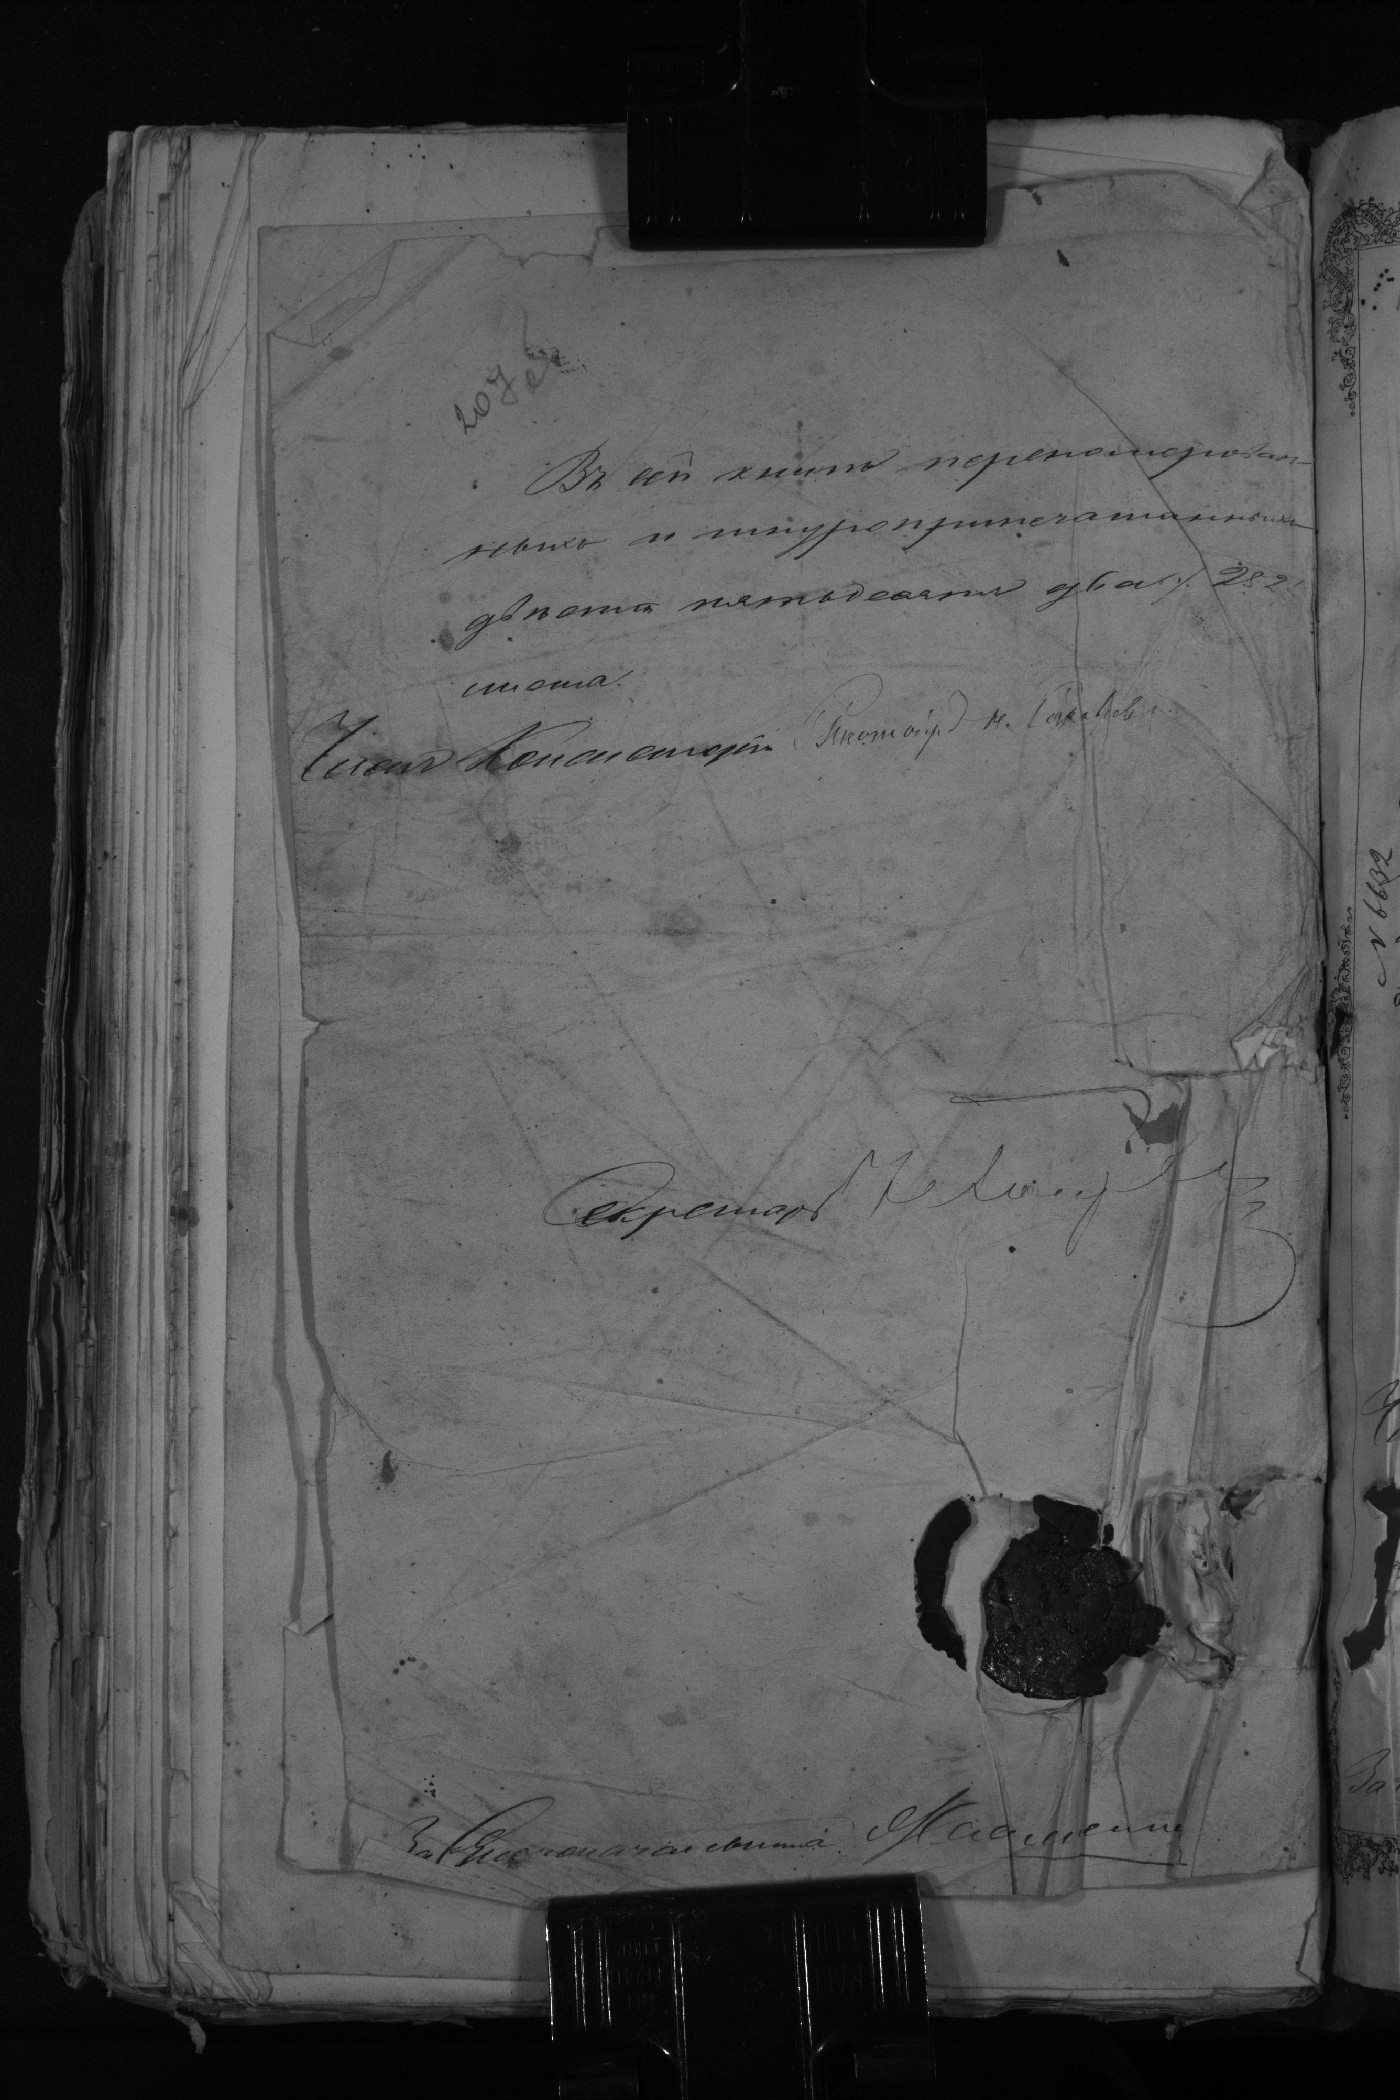 207 об
Въ сей книгѣ перенумерован-
ныхъ и шнуроприпечатанныхъ
двѣсти пятьдесятъ два /. 252.
листа.
Членъ Консисторіи
Секретарь
За Столоначальника
N 6632
За